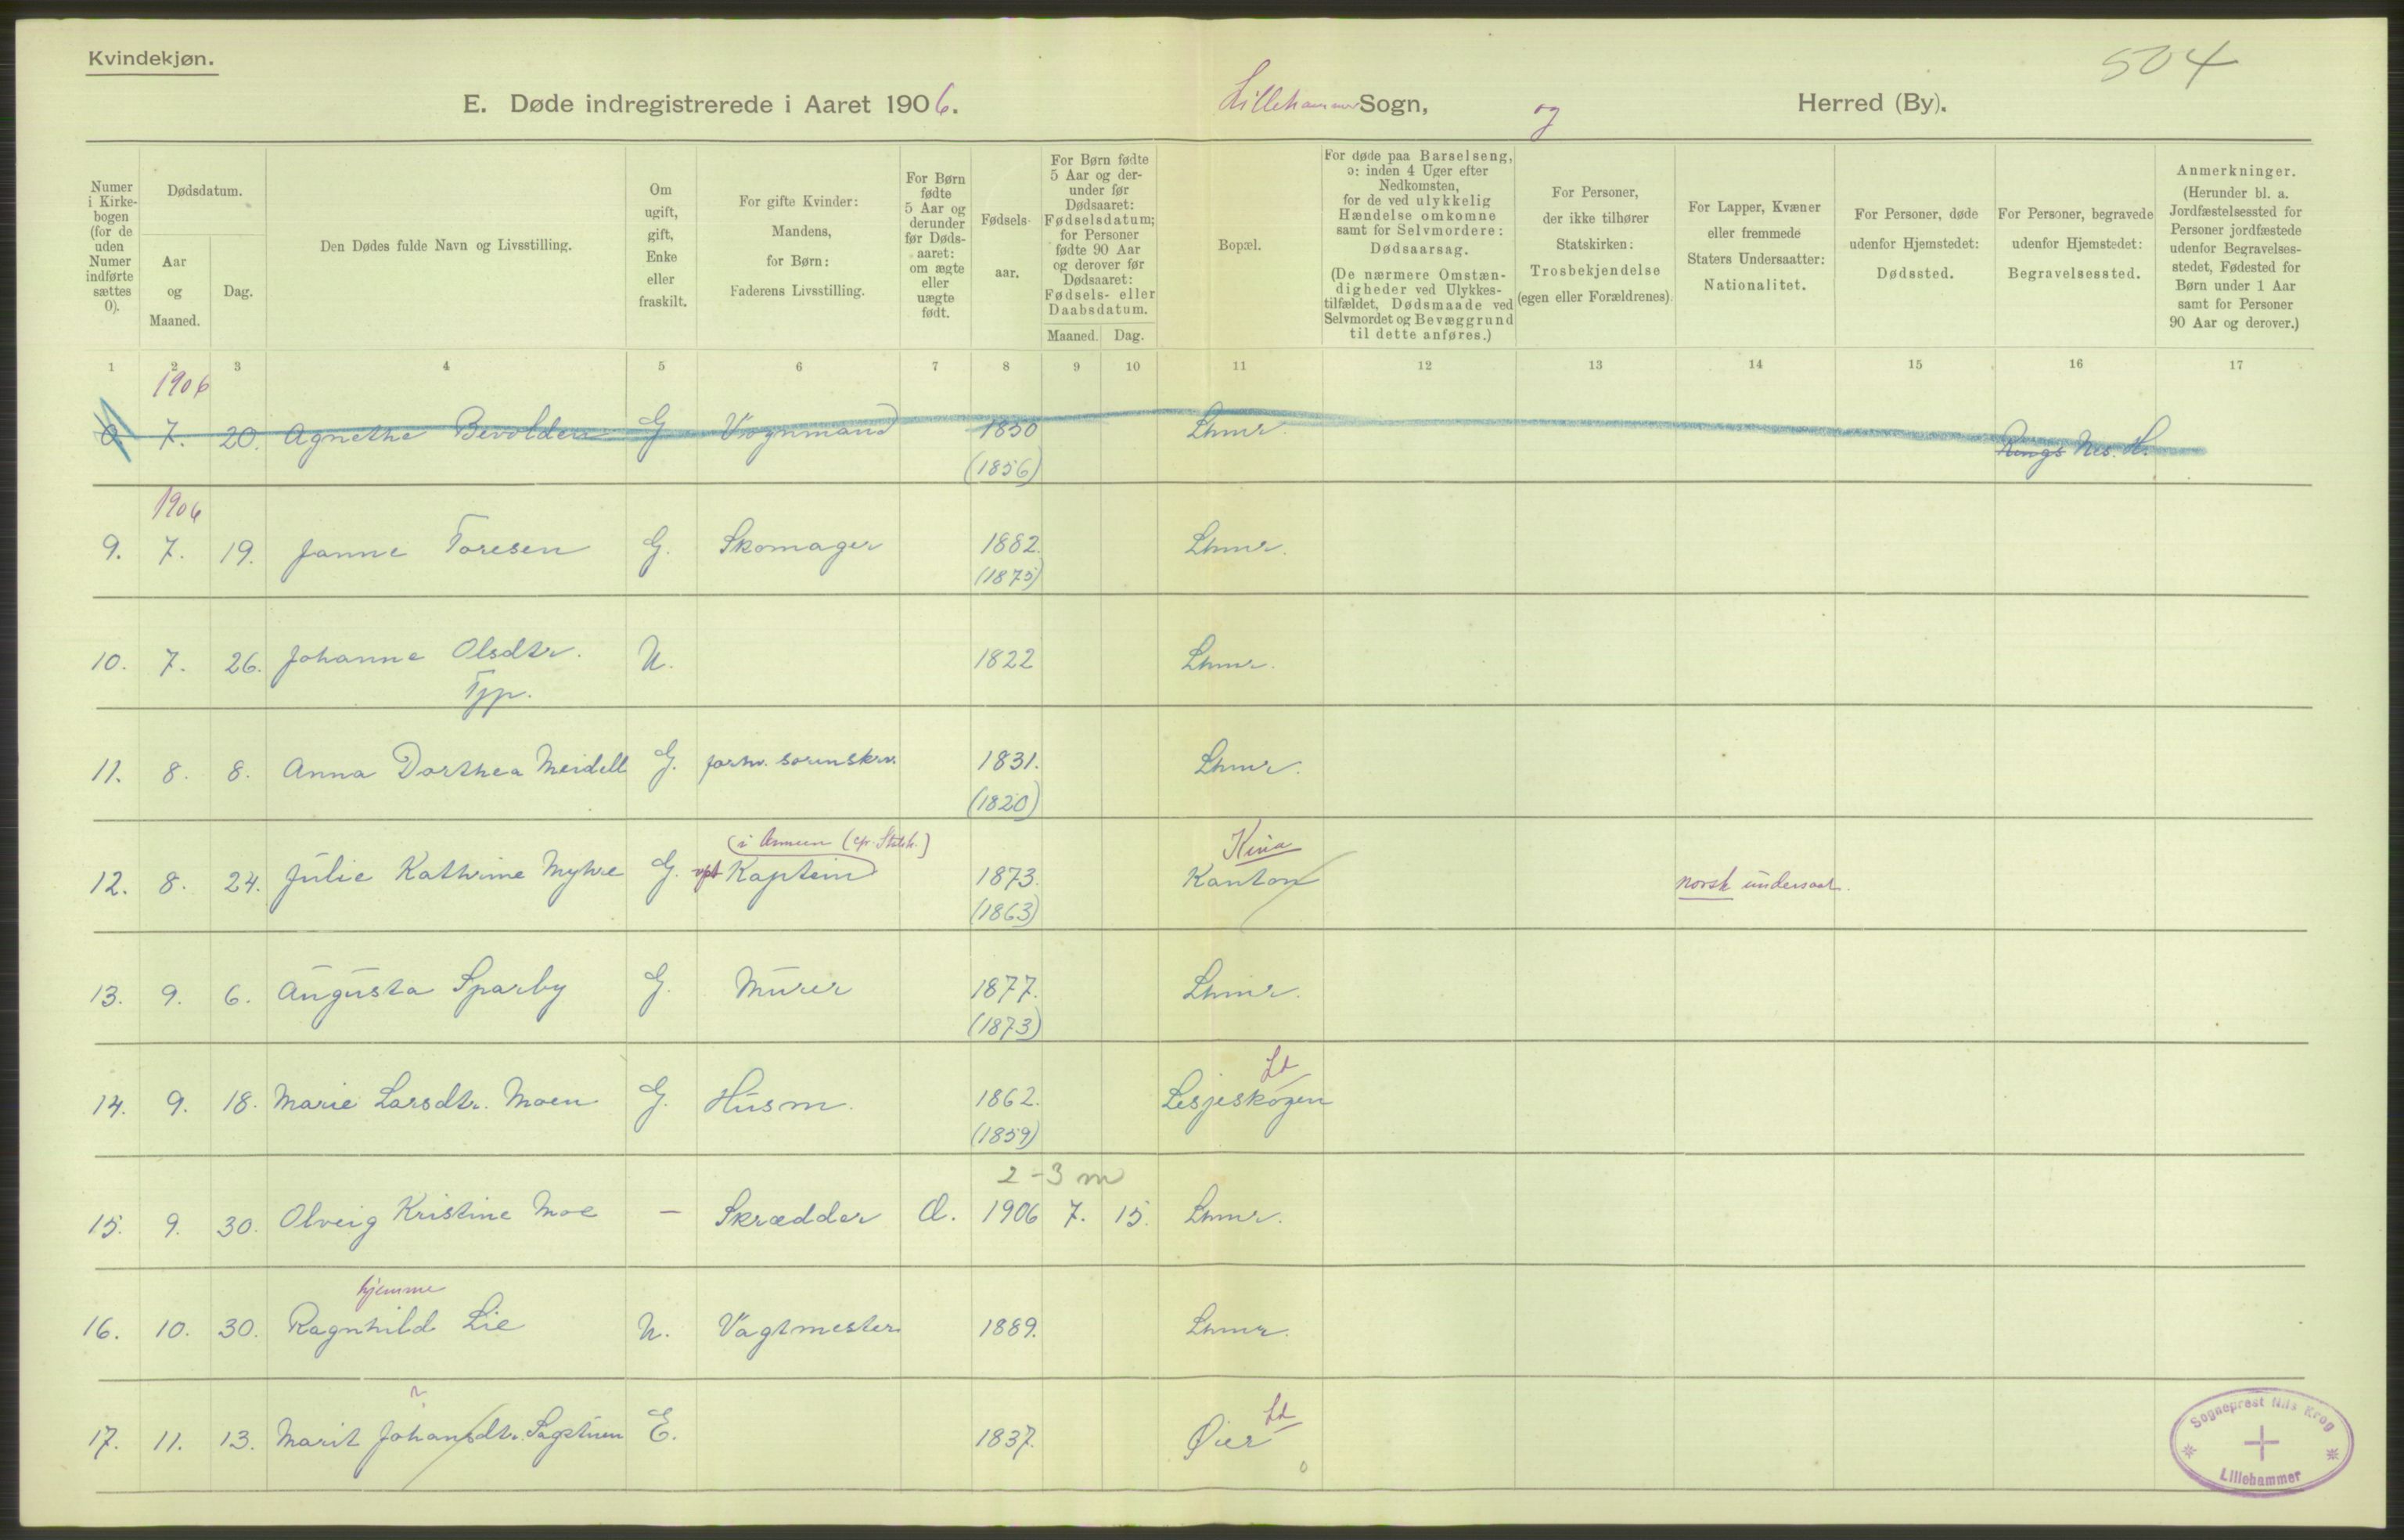 Kvindekjøn.
504
E. Døde indregistrerede i Aaret 1906. Lillehammer Sogn, og Herred (By).
Numer i Kirkebogen (for de uden Numer indførte sættes 0).
Dødsdatum.
Aar og Maaned.
Dag.
Den Dødes fulde Navn og Livsstilling.
Om ugift, gift, Enke eller fraskilt.
For gifte Kvinder: Mandens, for Børn: Faderens Livsstilling.
For Børn fødte 5 Aar og derunder før Dødsaaret: om ægte eller uægte født.
Fødselsaar.
For Børn fødte 5 Aar og derunder før Dødsaaret: Fødselsdatum; for Personer fødte 90 Aar og derover før Dødsaaret: Fødsels- eller Daabsdatum.
Maaned. Dag.
Bopæl.
For døde paa Barselseng, ɔ: inden 4 Uger efter Nedkomsten, for de ved ulykkelig Hændelse omkomne samt for Selvmordere: Dødsaarsag.
(De nærmere Omstændigheder ved Ulykkestilfældet, Dødsmaade ved Selvmordet og Bevæggrund til dette anføres.)
For Personer, der ikke tilhører Statskirken: Trosbekjendelse (egen eller Forældrenes).
For Lapper, Kvæner eller fremmede Staters Undersaatter: Nationalitet.
For Personer, døde udenfor Hjemstedet: Dødssted.
For Personer, begravede udenfor Hjemstedet: Begravelsessted.
Anmerkninger. (Herunder bl. a. Jordfæstelsessted for Personer jordfæstede udenfor Begravelsesstedet, Fødested for Børn under 1 Aar samt for Personer 90 Aar og derover.)
1 2 3 4 5 6 7 8 9 10 11 12 13 14 15 16 17
1906
0. 7. 20. Agnethe G Vognmand 1850 Lhmr. Rings Nes. H.
(1856)
1906
9. 7. 19. Janne Toresen G. Skomager 1882. Lhmr.
(1875)
10. 7. 26. Johanne Olsdtr. U. 1822 Lhmr.
Tjp.
11. 8. 8. Anna Dorthea Meidell G. forhv. sorenskrv. 1831. Lhmr.
(1820)
(i Armeen (ep. Statsk.) Kina
12. 8. 24. Julie Kathrine Myhre G. Kaptein 1873. Kanton norsk undersaat.
(1863)
13. 9. 6. Augusta Sparby G. Murer 1877. Lhmr.
(1873)
Ld
14. 9. 18. Marie Larsdtr. Moen G. Husm. 1862. Lesjeskogen
(1859)
2-3 m
15. 9. 30. Olveig Kristine Moe — Skrædder 1906 7. 15. Lhmr.
hjemme
16. 10. 30. Ragnhild Lie U. Vagtmester 1889. Lhmr.
Ld
17. 11. 13. Marit Johansdtr. Sagstuen E. 1837. Øier
Sogneprest Nils Krog
Lillehammer